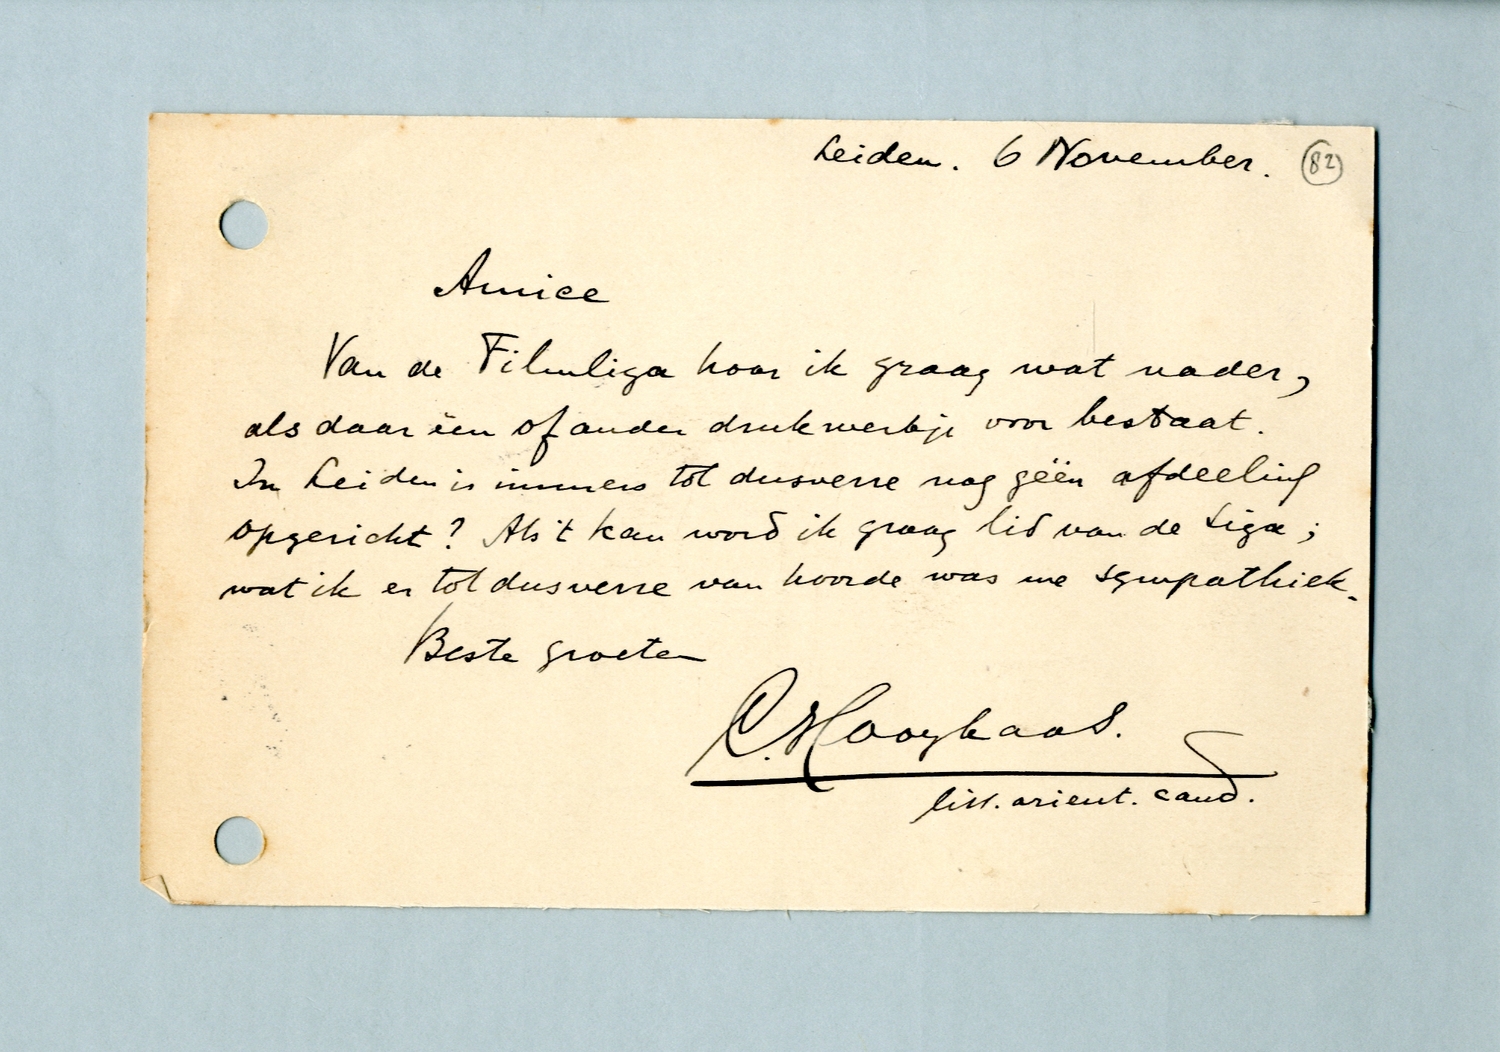 Leiden. 6 November. 82
Amice
Van de Filmliga hoor ik graag wat nader,
als daar één of ander drukwerkje voor bestaat.
In Leiden is immers tot dusverre nog géén afdeeling
opgericht? Als 't kan word ik graag lid van de Liga;
wat ik er tot dusverre van hoorde was me sympathiek.
Beste groeten
C. Hooykaas.
litt. orient. cand.